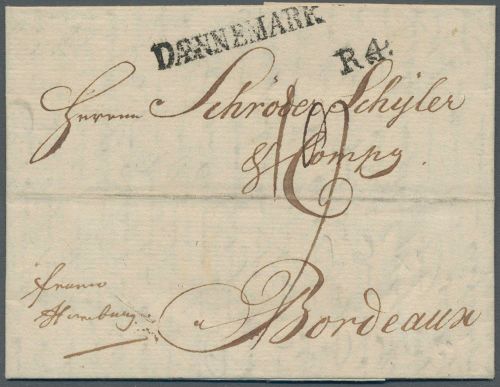 DÆNNEMARK
R4.
Herren Schröder Schÿler
& Compy.
franco
Hamburg
a Bordeaux